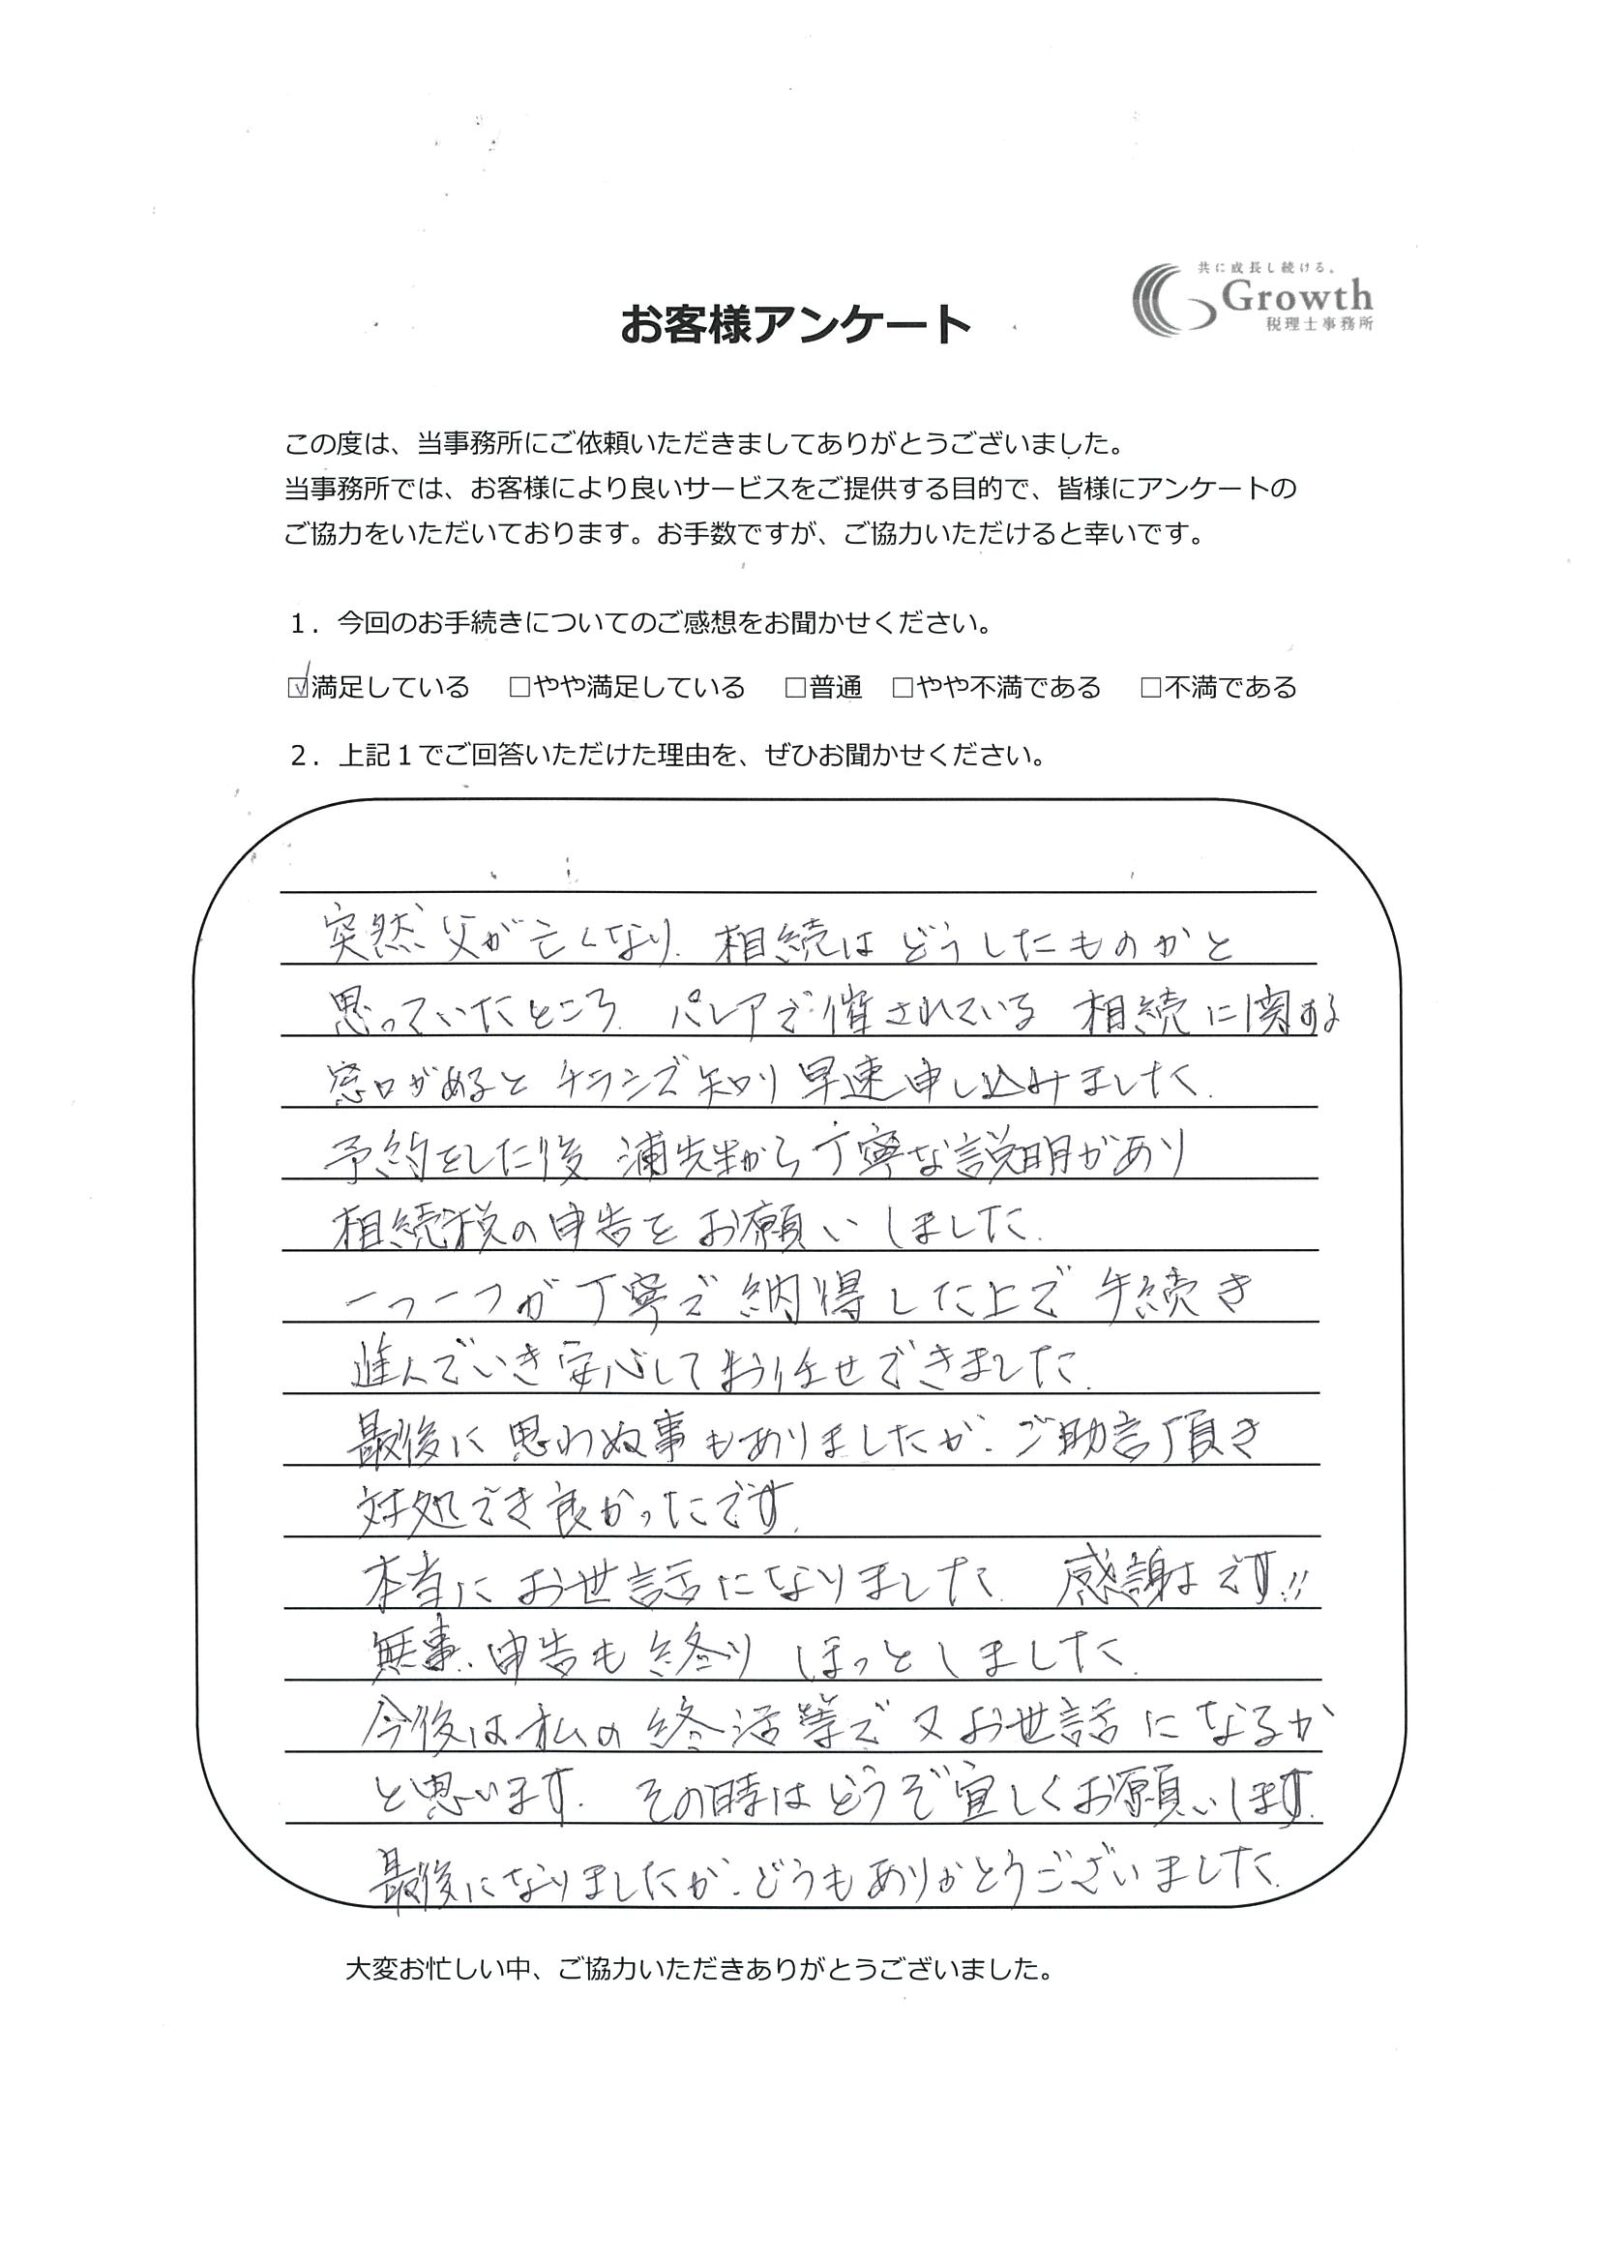 共に成長し続ける。
Growth
税理士事務所
お客様アンケート
この度は、当事務所にご依頼いただきましてありがとうございました。
当事務所では、お客様により良いサービスをご提供する目的で、皆様にアンケートの
ご協力をいただいております。お手数ですが、ご協力いただけると幸いです。
1．今回のお手続きについてのご感想をお聞かせください。
☑満足している □やや満足している □普通 □やや不満である □不満である
2．上記１でご回答いただけた理由を、ぜひお聞かせください。
突然、父が亡くなり、相続はどうしたものかと
思っていたところ、パレアで催されている相続に関する
窓口があるとチラシで知り早速申し込みました。
予約をした後 浦先生から丁寧な説明があり
相続税の申告をお願いしました。
一つ一つが丁寧で納得した上で手続き
進んでいき安心してお任せできました。
最後に思わぬ事もありましたが、ご助言頂き
対処でき良かったです。
本当にお世話になりました。感謝です!!
無事、申告も終り ほっとしました。
今後は私の終活等で又お世話になるか
と思います。その時はどうぞ宜しくお願いします。
最後になりましたが、どうもありがとうございました。
大変お忙しい中、ご協力いただきありがとうございました。